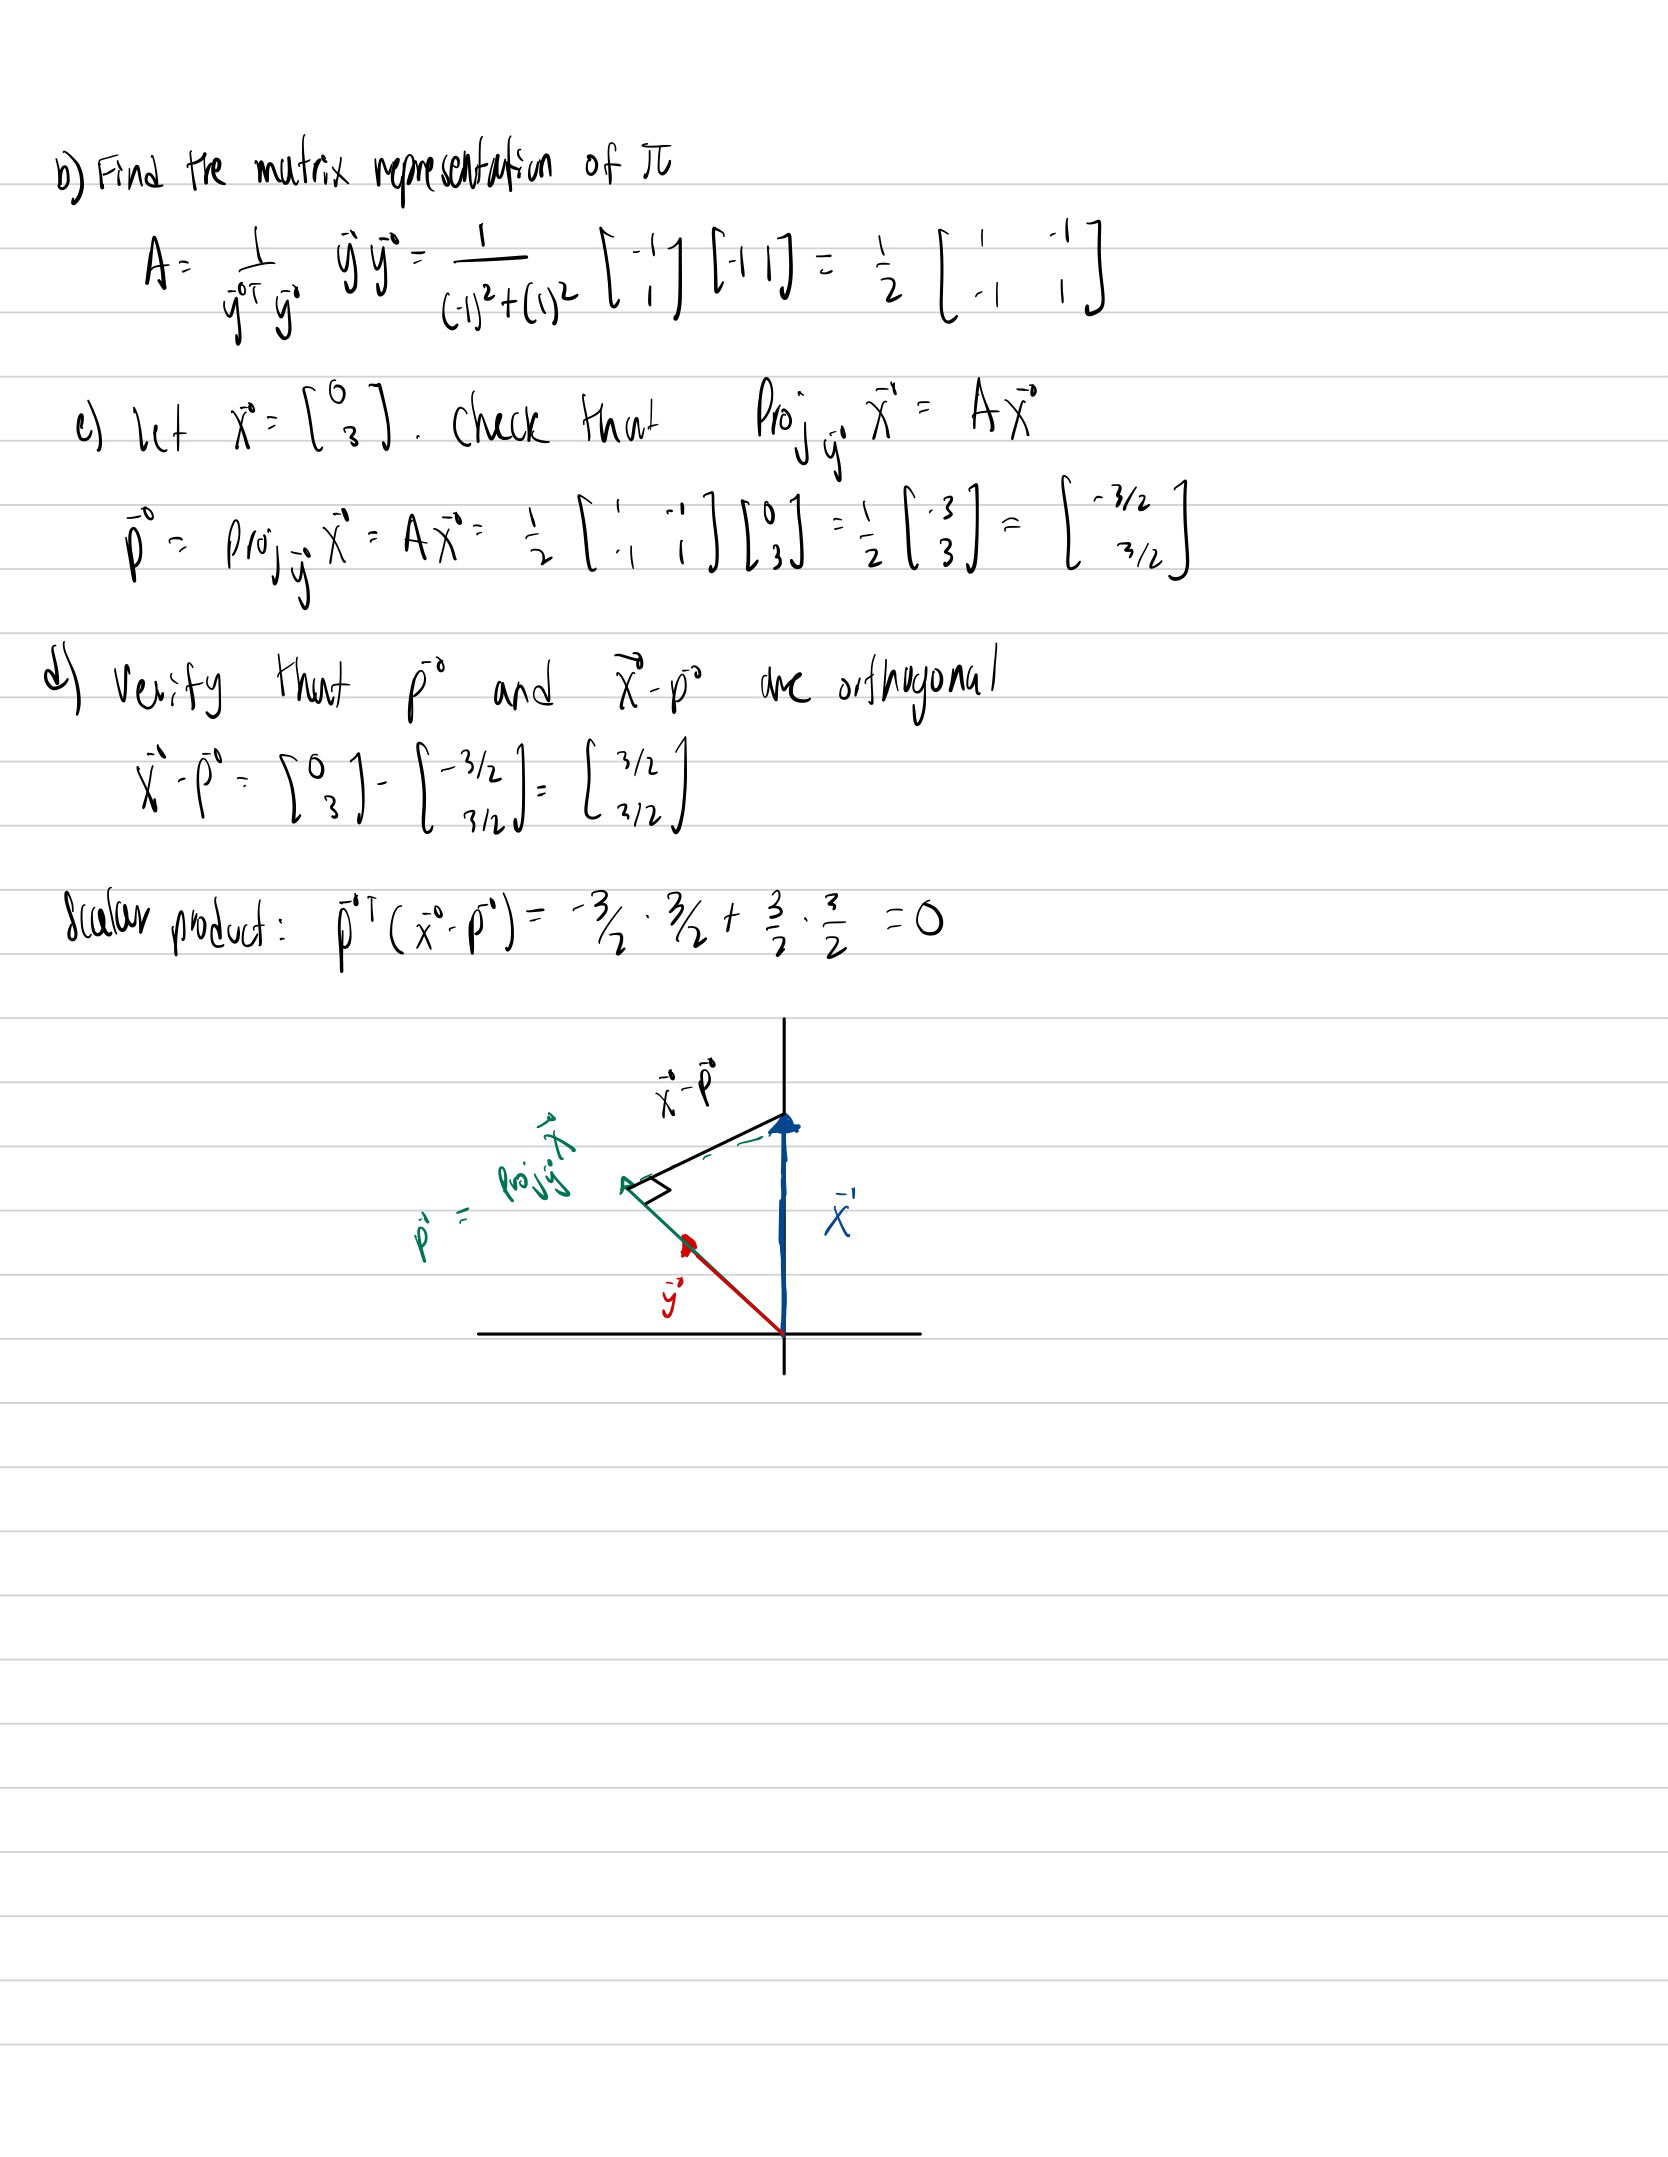 b) Find the matrix representation of π
A = 1/(y⃗ᵀ y⃗) y⃗ y⃗ = 1/((-1)²+(1)²) [-1; 1] [-1 1] = 1/2 [1 -1; -1 1]
c) Let x⃗ = [0; 3]. Check that Proj_y⃗ x⃗ = Ax⃗
p⃗ = Proj_y⃗ x⃗ = Ax⃗ = 1/2 [1 -1; -1 1] [0; 3] = 1/2 [-3; 3] = [-3/2; 3/2]
d) Verify that p⃗ and x⃗-p⃗ are orthogonal
x⃗-p⃗ = [0; 3] - [-3/2; 3/2] = [3/2; 3/2]
Scalar product: p⃗ᵀ(x⃗-p⃗) = -3/2 · 3/2 + 3/2 · 3/2 = 0
x⃗-p⃗
p⃗ = Proj_y⃗ x⃗
x⃗
y⃗